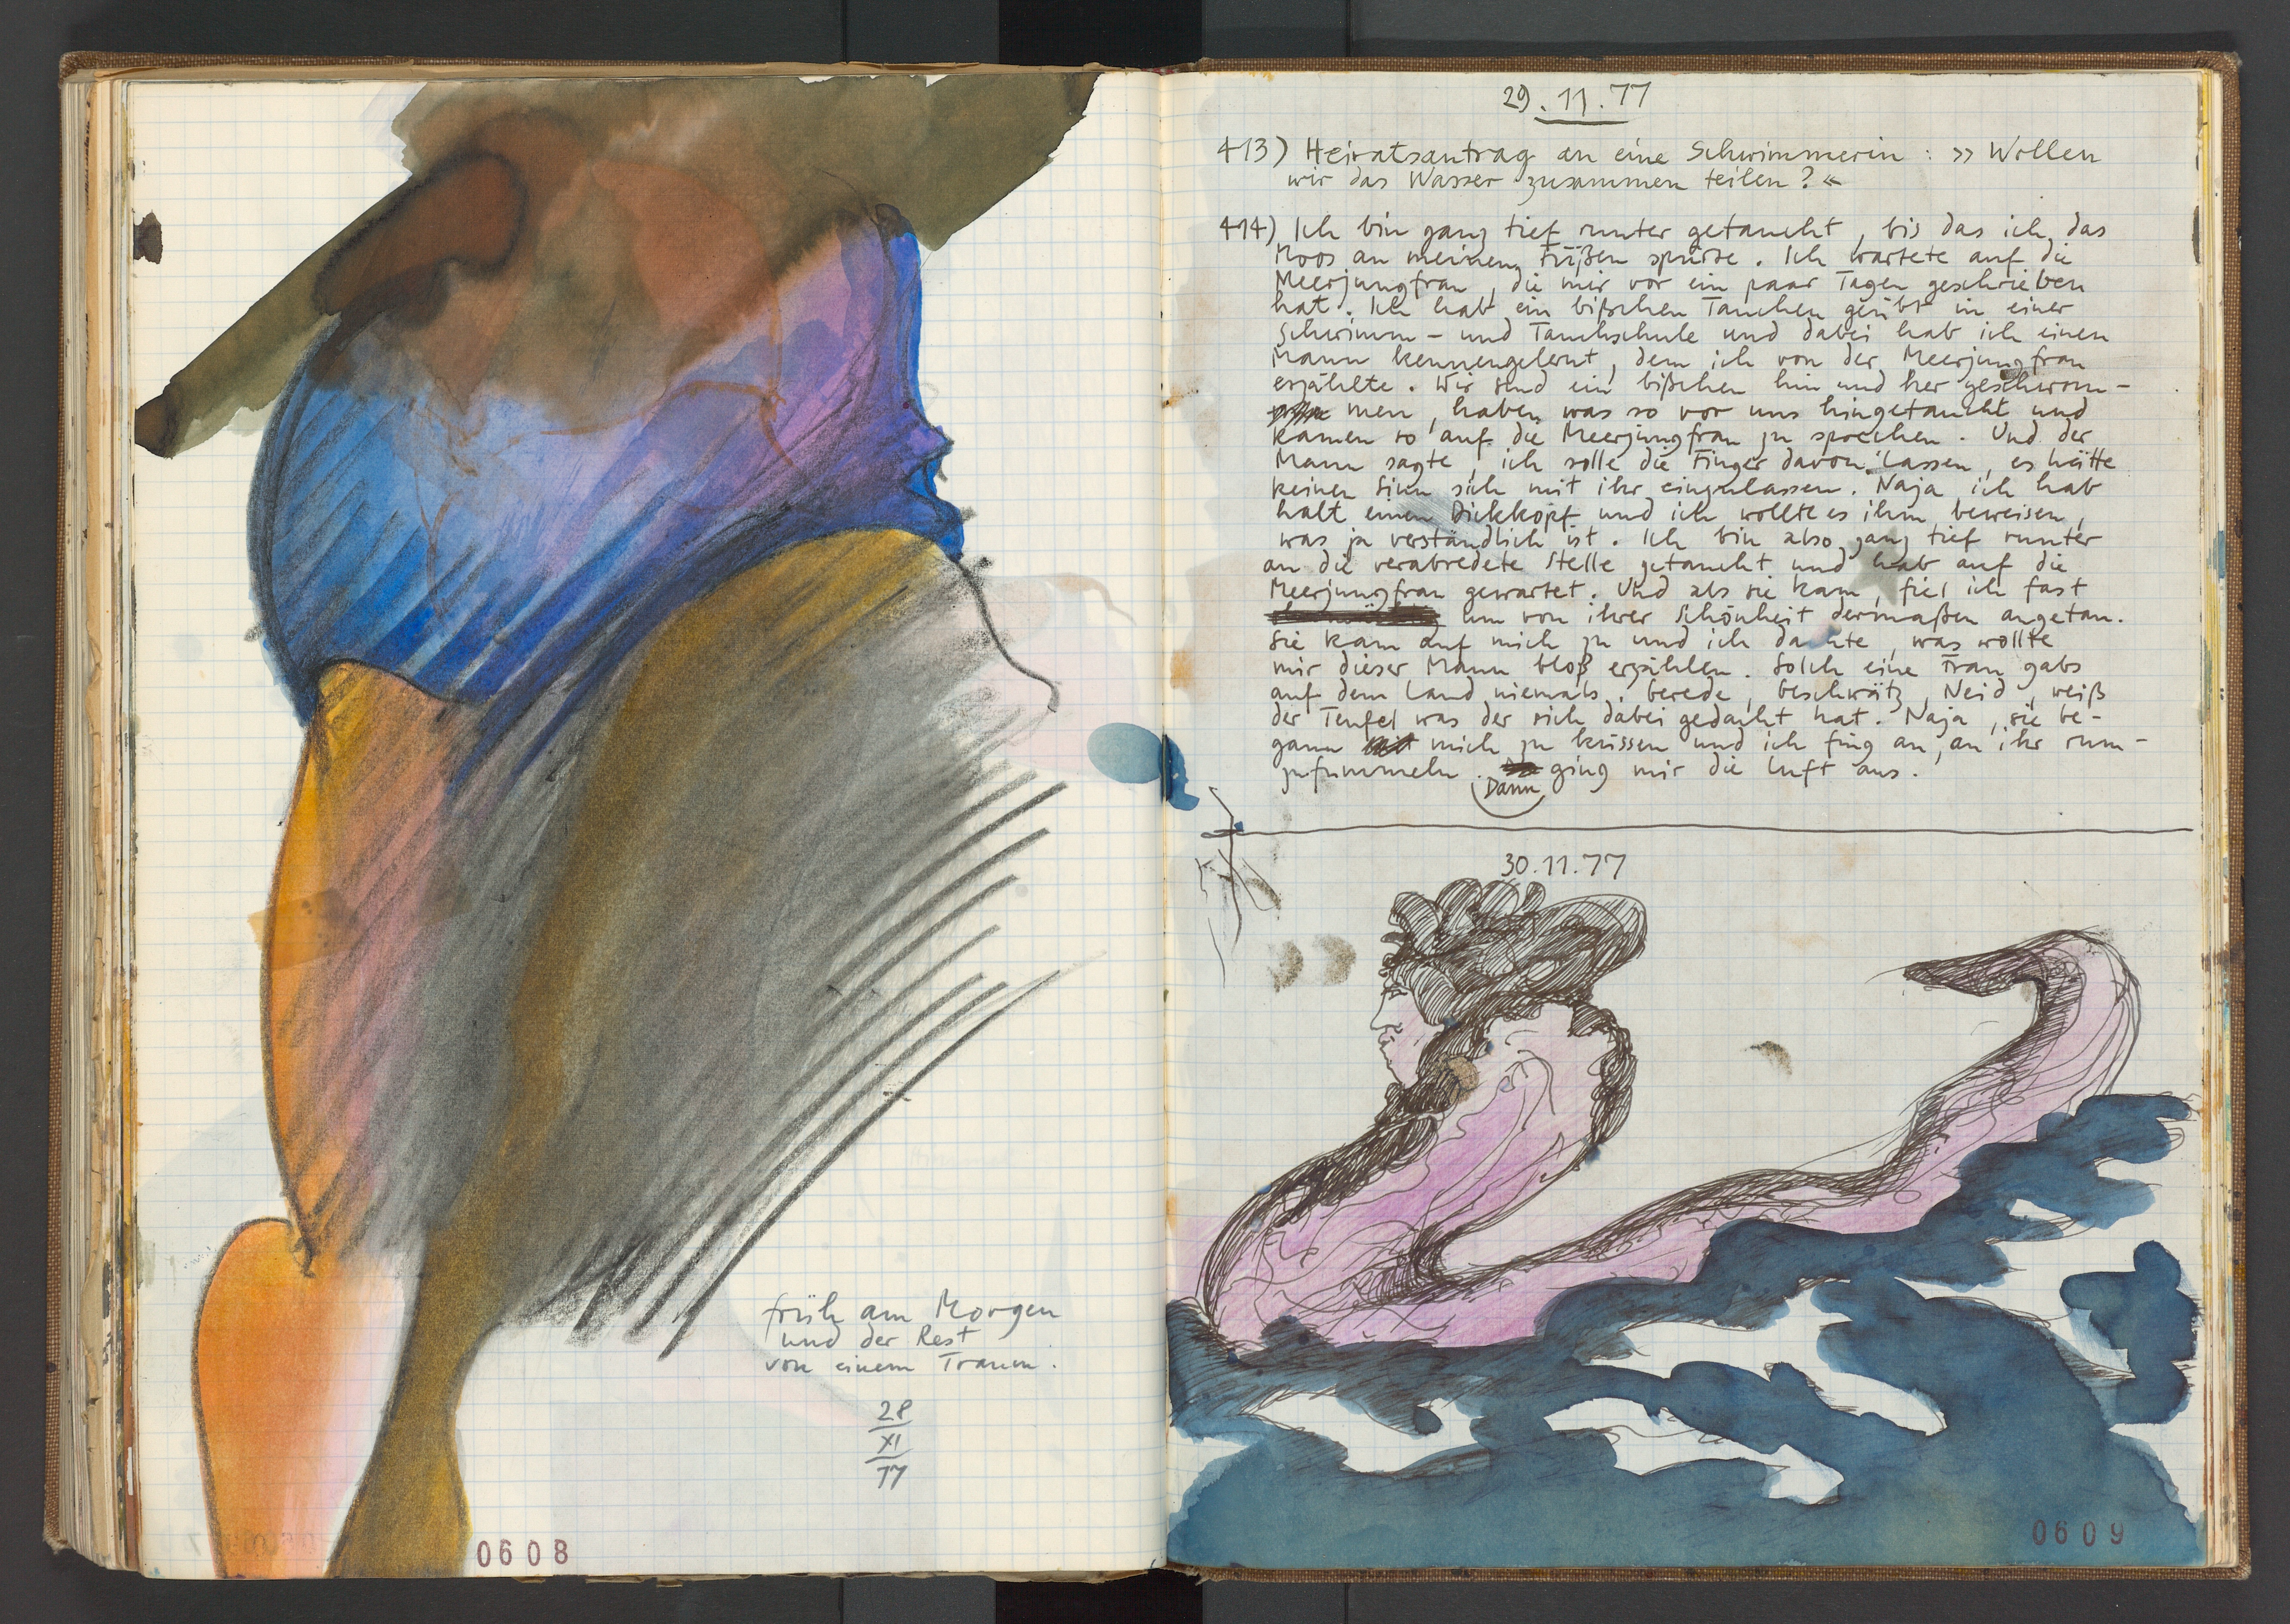 früh am Morgen
und der Rest
von einem Traum.
28
XI
77
0608
29.11.77
413) Heiratsantrag an eine Schwimmerin: »Wollen
wir das Wasser zusammen teilen?«
414) Ich bin ganz tief runter getaucht, bis das ich das
Moos an meinen Füßen spürte. Ich wartete auf die
Meerjungfrau, die mir vor ein paar Tagen geschrieben
hat. Ich hab ein bißchen Tauchen geübt in einer
Schwimm- und Tauchschule und dabei hab ich einen
Mann kennengelernt, dem ich von der Meerjungfrau
erzählte. Wir sind ein bißchen hin und her geschwom-
men, haben was so vor uns hingetaucht und
kamen so auf die Meerjungfrau zu sprechen. Und der
Mann sagte, ich solle die Finger davon lassen, es hätte
keinen Sinn sich mit ihr einzulassen. Naja, ich hab
halt einen Dickkopf und ich wollte es ihm beweisen,
was ja verständlich ist. Ich bin also ganz tief runter
an die verabredete Stelle getaucht und hab auf die
Meerjungfrau gewartet. Und als sie kam, fiel ich fast
um von ihrer Schönheit dermaßen angetan.
Sie kam auf mich zu und ich dachte, was wollte
mir dieser Mann bloß erzählen. Solch eine Frau gabs
auf dem Land niemals. Gerede, Geschwätz, Neid, weiß
der Teufel was der sich dabei gedacht hat. Naja, sie be-
gann mich zu küssen und ich fing an, an ihr rum-
zufummeln. Dann ging mir die Luft aus.
30.11.77
0609